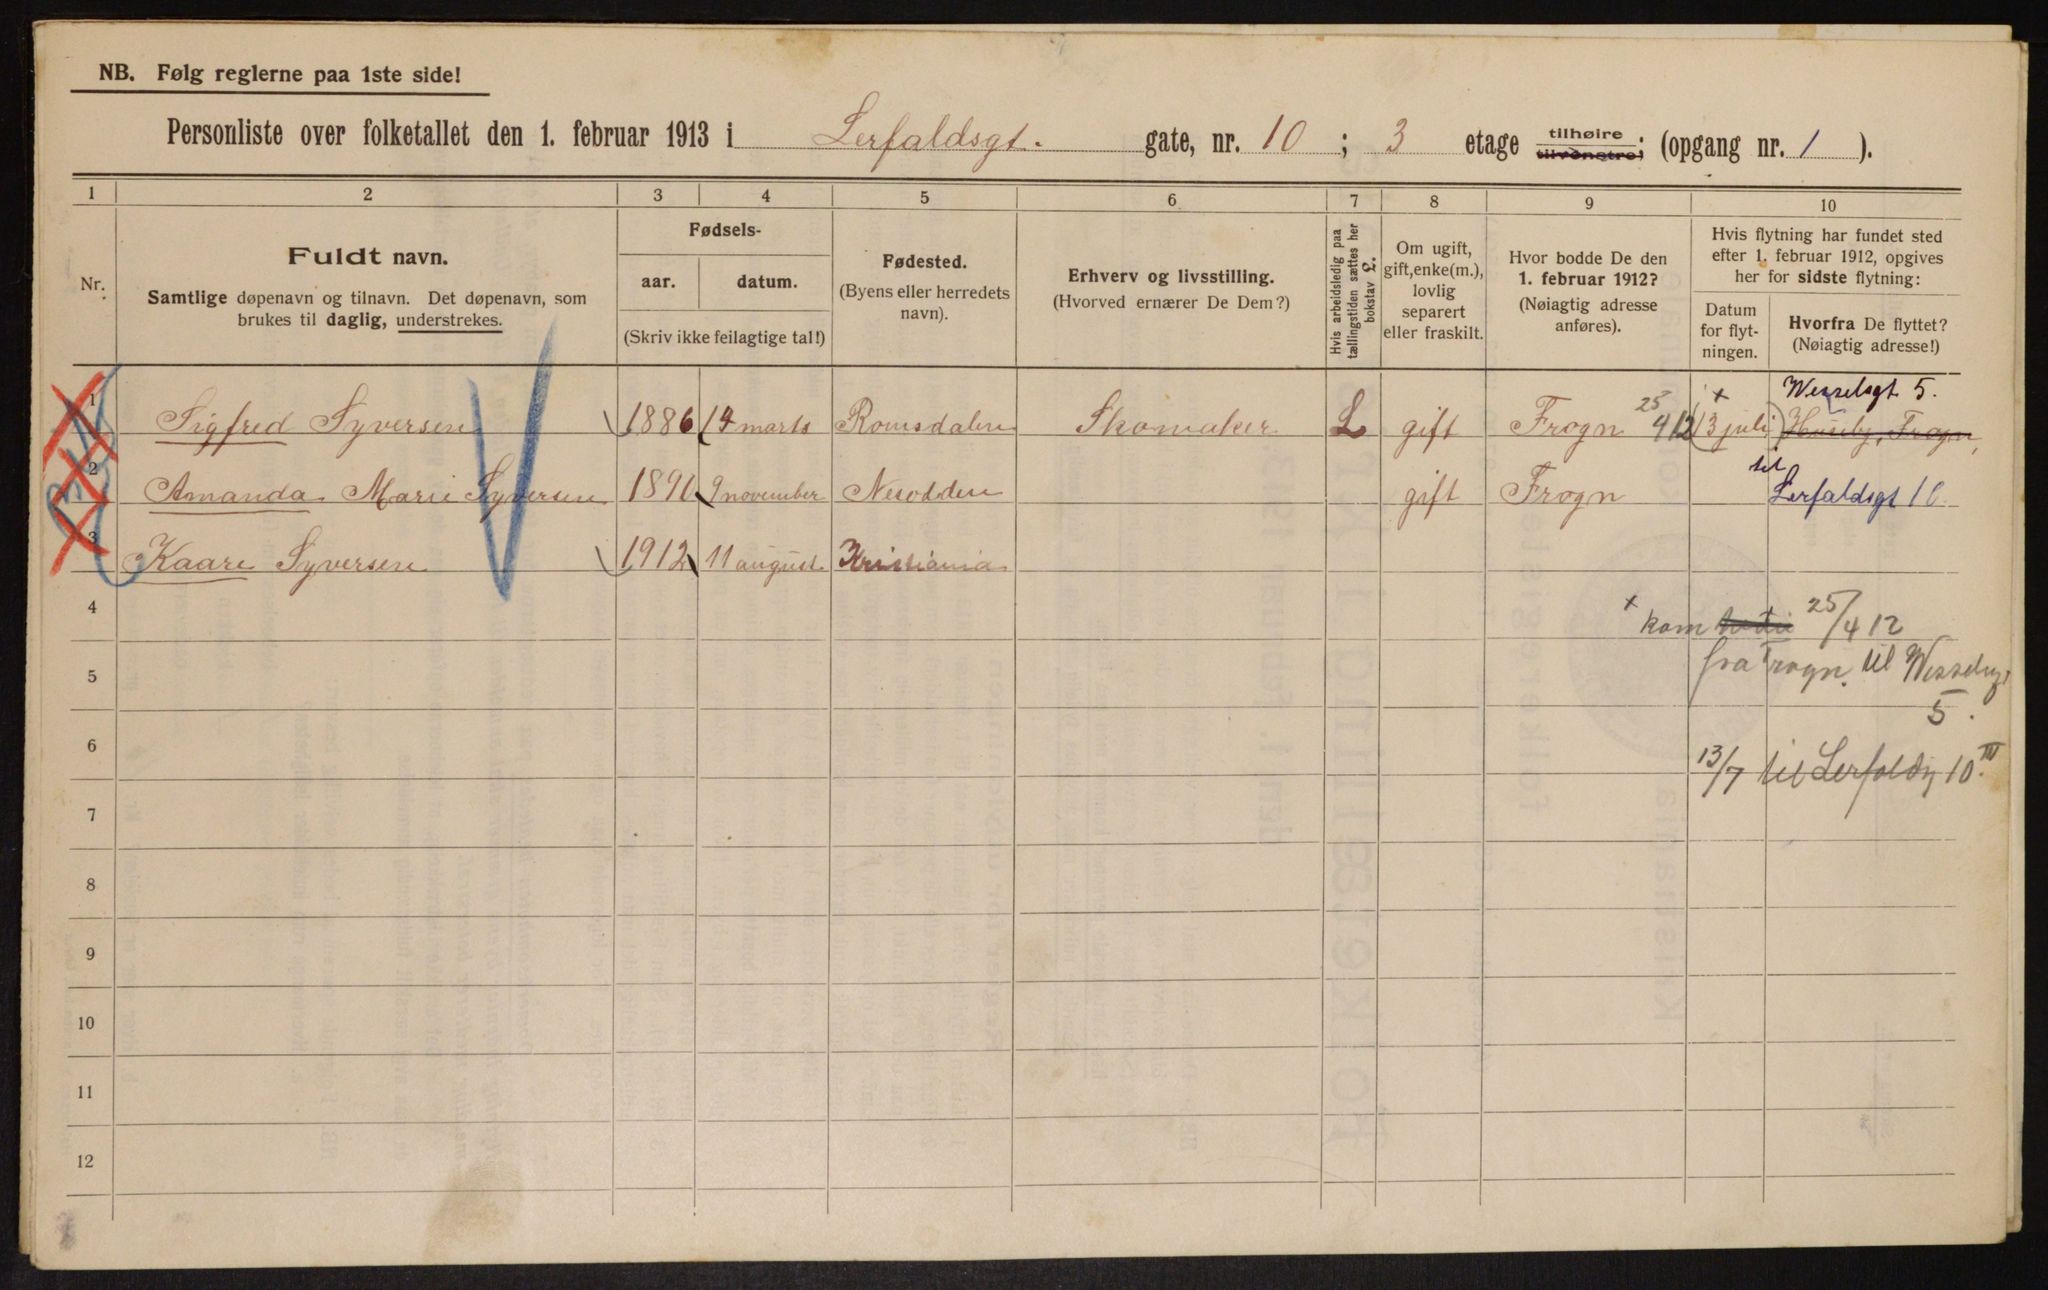 NB. Følg reglerne paa 1ste side!
Personliste over folketallet den 1. februar 1913 i Lerfaldsgt. gate, nr. 10 ; 3 etage tilhøire tilvenstre; (opgang nr. 1 ).
1 2 3 4 5 6 7 8 9 10
Nr.
Fuldt navn.
Samtlige døpenavn og tilnavn. Det døpenavn, som
brukes til daglig, understrekes.
Fødsels-
aar. datum.
(Skriv ikke feilagtige tal!)
Fødested.
(Byens eller herredets
navn).
Erhverv og livsstilling.
(Hvorved ernærer De Dem?)
Hvis arbeidsledig paa
tællingstiden sættes her
bokstav L.
Om ugift,
gift, enke(m.),
lovlig
separert
eller fraskilt.
Hvor bodde De den
1. februar 1912?
(Nøiagtig adresse
anføres).
Hvis flytning har fundet sted
efter 1. februar 1912, opgives
her for sidste flytning:
Datum
for flyt-
ningen.
Hvorfra De flyttet?
(Nøiagtig adresse!)
Wesselsgt 5.
1 Sigfred Syversen 1886 14 marts Romsdalen Skomaker L gift Frogn 25 4 12 x 13 juli Huseby, Frogn,
2 Amanda Marie Syversen 1891 9 november Nesodden gift Frogn til Lerfaldsgt 10
3 Kaare Syversen 1912 11 august Kristiania
4 x kom 25/4 12
5 fra Frogn til Wesselsg.
5.
6 13/7 til Lerfaldsg 10 III
7
8
9
10
11
12